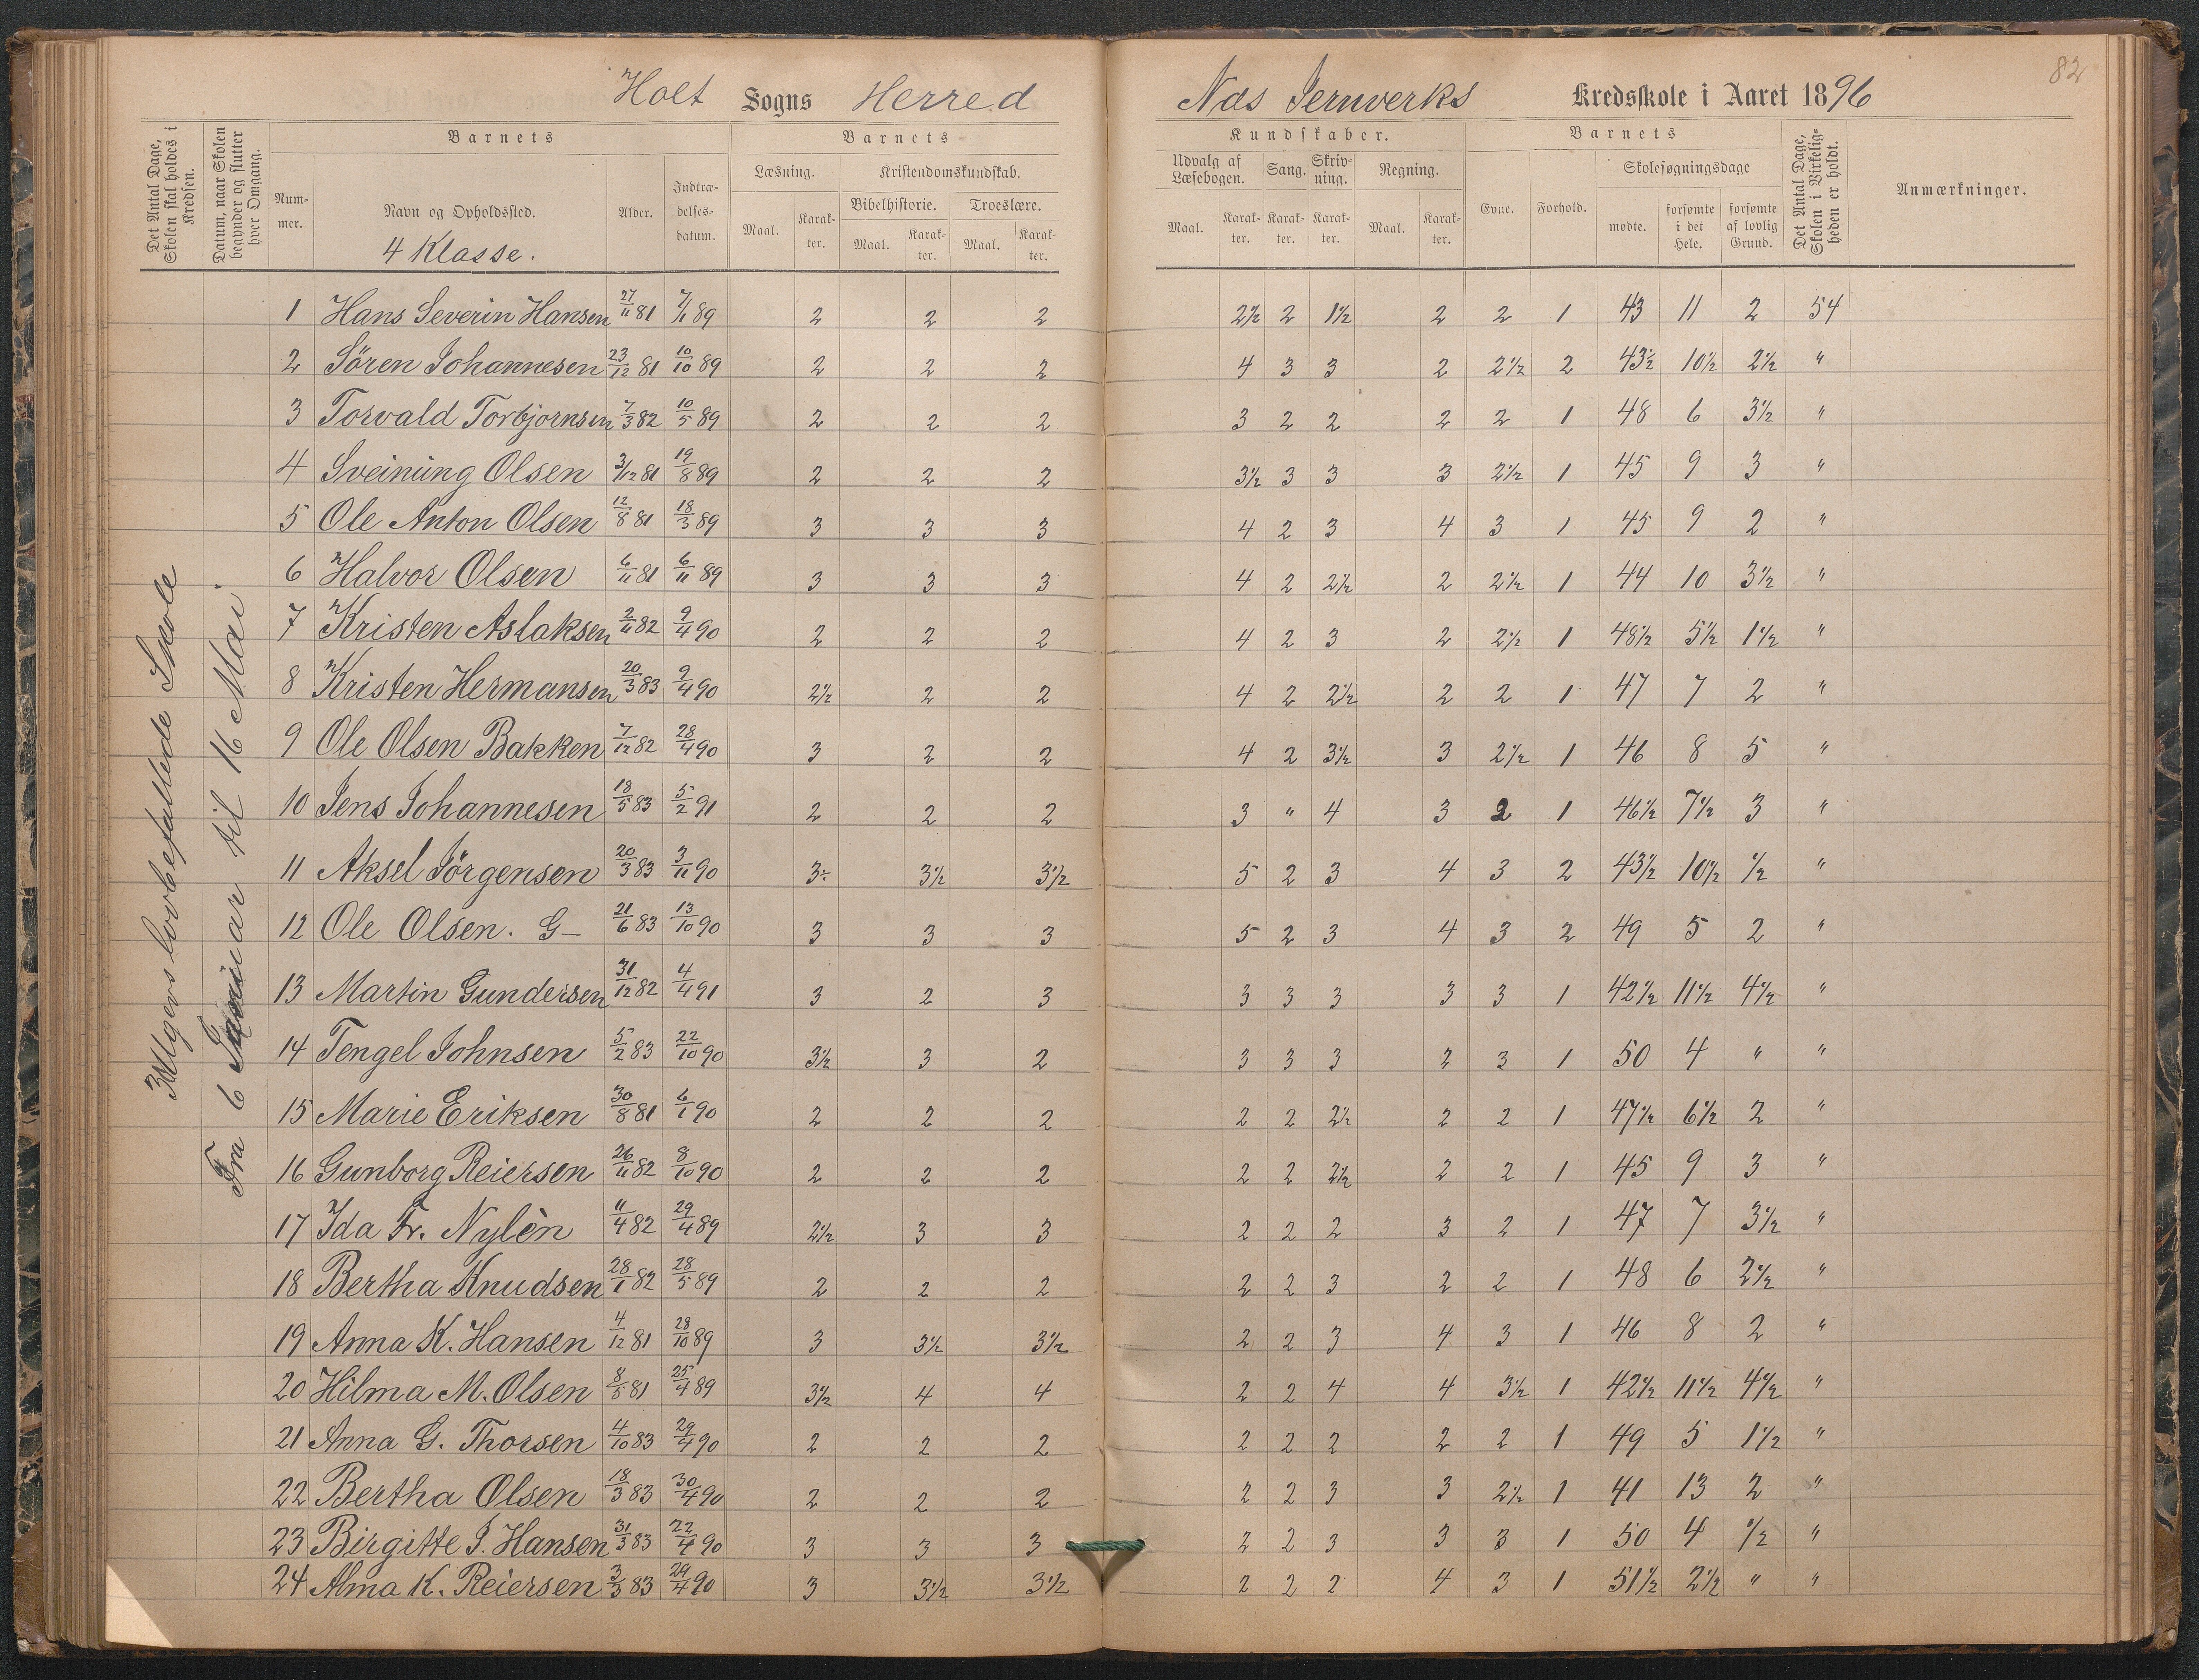 82
Holt Sogns Herred Næs Jernverks Kredsskole i Aaret 1896
Det Antal Dage, Skolen skal holdes i Kredsen.
Datum, naar Skolen begynder og slutter hver Omgang.
Barnets
Nummer.
Navn og Opholdssted.
Alder.
Indtrædelsesdatum.
4 Klasse.
Barnets Kundskaber.
Læsning.
Maal. Karakter.
Kristendomskundskab.
Bibelhistorie. Troeslære.
Maal. Karakter. Maal. Karakter.
Udvalg af Læsebogen. Sang. Skrivning. Regning.
Maal. Karakter. Karakter. Karakter. Maal. Karakter.
Barnets
Evne. Forhold.
Skolesøgningsdage
mødte. forsømte i det Hele. forsømte af lovlig Grund.
Det Antal Dage, Skolen i Virkeligheden er holdt.
Anmærkninger.
lovbefallede Skole
Fra 6 Januar til 16 Mai.
1 Hans Severin Hansen 27/11 81 7/1 89 2 2 2 2½ 2 1½ 2 2 1 43 11 2 54
2 Sören Johannesen 23/12 81 10/10 89 2 2 2 4 3 3 2 2½ 2 43½ 10½ 2½ "
3 Torvald Torbjornsen 7/3 82 10/5 89 2 2 2 3 2 2 2 2 1 48 6 3½ "
4 Sveinung Olsen 3/12 81 19/8 89 2 2 2 3½ 3 3 3 2½ 1 45 9 3 "
5 Ole Anton Olsen 12/8 81 18/3 89 3 3 3 4 2 3 4 3 1 45 9 2 "
6 Halvor Olsen 6/11 81 6/11 89 3 3 3 4 2 2½ 2 2½ 1 44 10 3½ "
7 Kristen Aslaksen 2/11 82 9/4 90 2 2 2 4 2 3 2 2½ 1 48½ 5½ 1½ "
8 Kristen Hermansen 20/3 83 9/4 90 2½ 2 2 4 2 2½ 2 2 1 47 7 2 "
9 Ole Olsen Bakken 7/12 82 28/4 90 3 2 2 4 2 3½ 3 2½ 1 46 8 5 "
10 Jens Johannesen 18/5 83 5/2 91 2 2 2 3 " 4 3 2 1 46½ 7½ 3 "
11 Aksel Jörgensen 20/3 83 3/11 90 3÷ 3½ 3½ 5 2 3 4 3 2 43½ 10½ ½ "
12 Ole Olsen. G— 21/6 83 13/10 90 3 3 3 5 2 3 4 3 2 49 5 2 "
13 Martin Gundersen 31/12 82 4/4 91 3 2 3 3 3 3 3 3 1 42½ 11½ 4½ "
14 Tengel Johnsen 5/2 83 22/10 90 3½ 3 2 3 3 3 2 3 1 50 4 " "
15 Marie Eriksen 30/8 81 6/1 90 2 2 2 2 2 2½ 2 2 1 47½ 6½ 2 "
16 Gunborg Reiersen 26/11 82 8/10 90 2 2 2 2 2 2½ 2 2 1 45 9 3 "
17 Ida Fr. Nylèn 11/4 82 29/4 89 2½ 3 3 2 2 2 3 2 1 47 7 3½ "
18 Bertha Knudsen 28/1 82 28/5 89 2 2 2 2 2 3 2 2 1 48 6 2½ "
19 Anna K. Hansen 4/12 81 28/10 89 3 3½ 3½ 2 2 3 4 3 1 46 8 2 "
20 Hilma M. Olsen 8/5 81 25/4 89 3½ 4 4 2 2 4 4 3½ 1 42½ 11½ 4½ "
21 Anna G. Thorsen 4/10 83 29/4 90 2 2 2 2 2 2 2 2 1 49 5 1½ "
22 Bertha Olsen 18/3 83 30/4 90 2 2 2 2 2 3 3 2½ 1 41 13 2 "
23 Birgitte J. Hansen 31/3 83 22/4 90 3 3 3 2 2 3 3 3 1 50 4 ½ "
24 Alma K. Reiersen 3/3 83 29/4 90 3 3½ 3½ 2 2 2 4 3 1 51½ 2½ " "